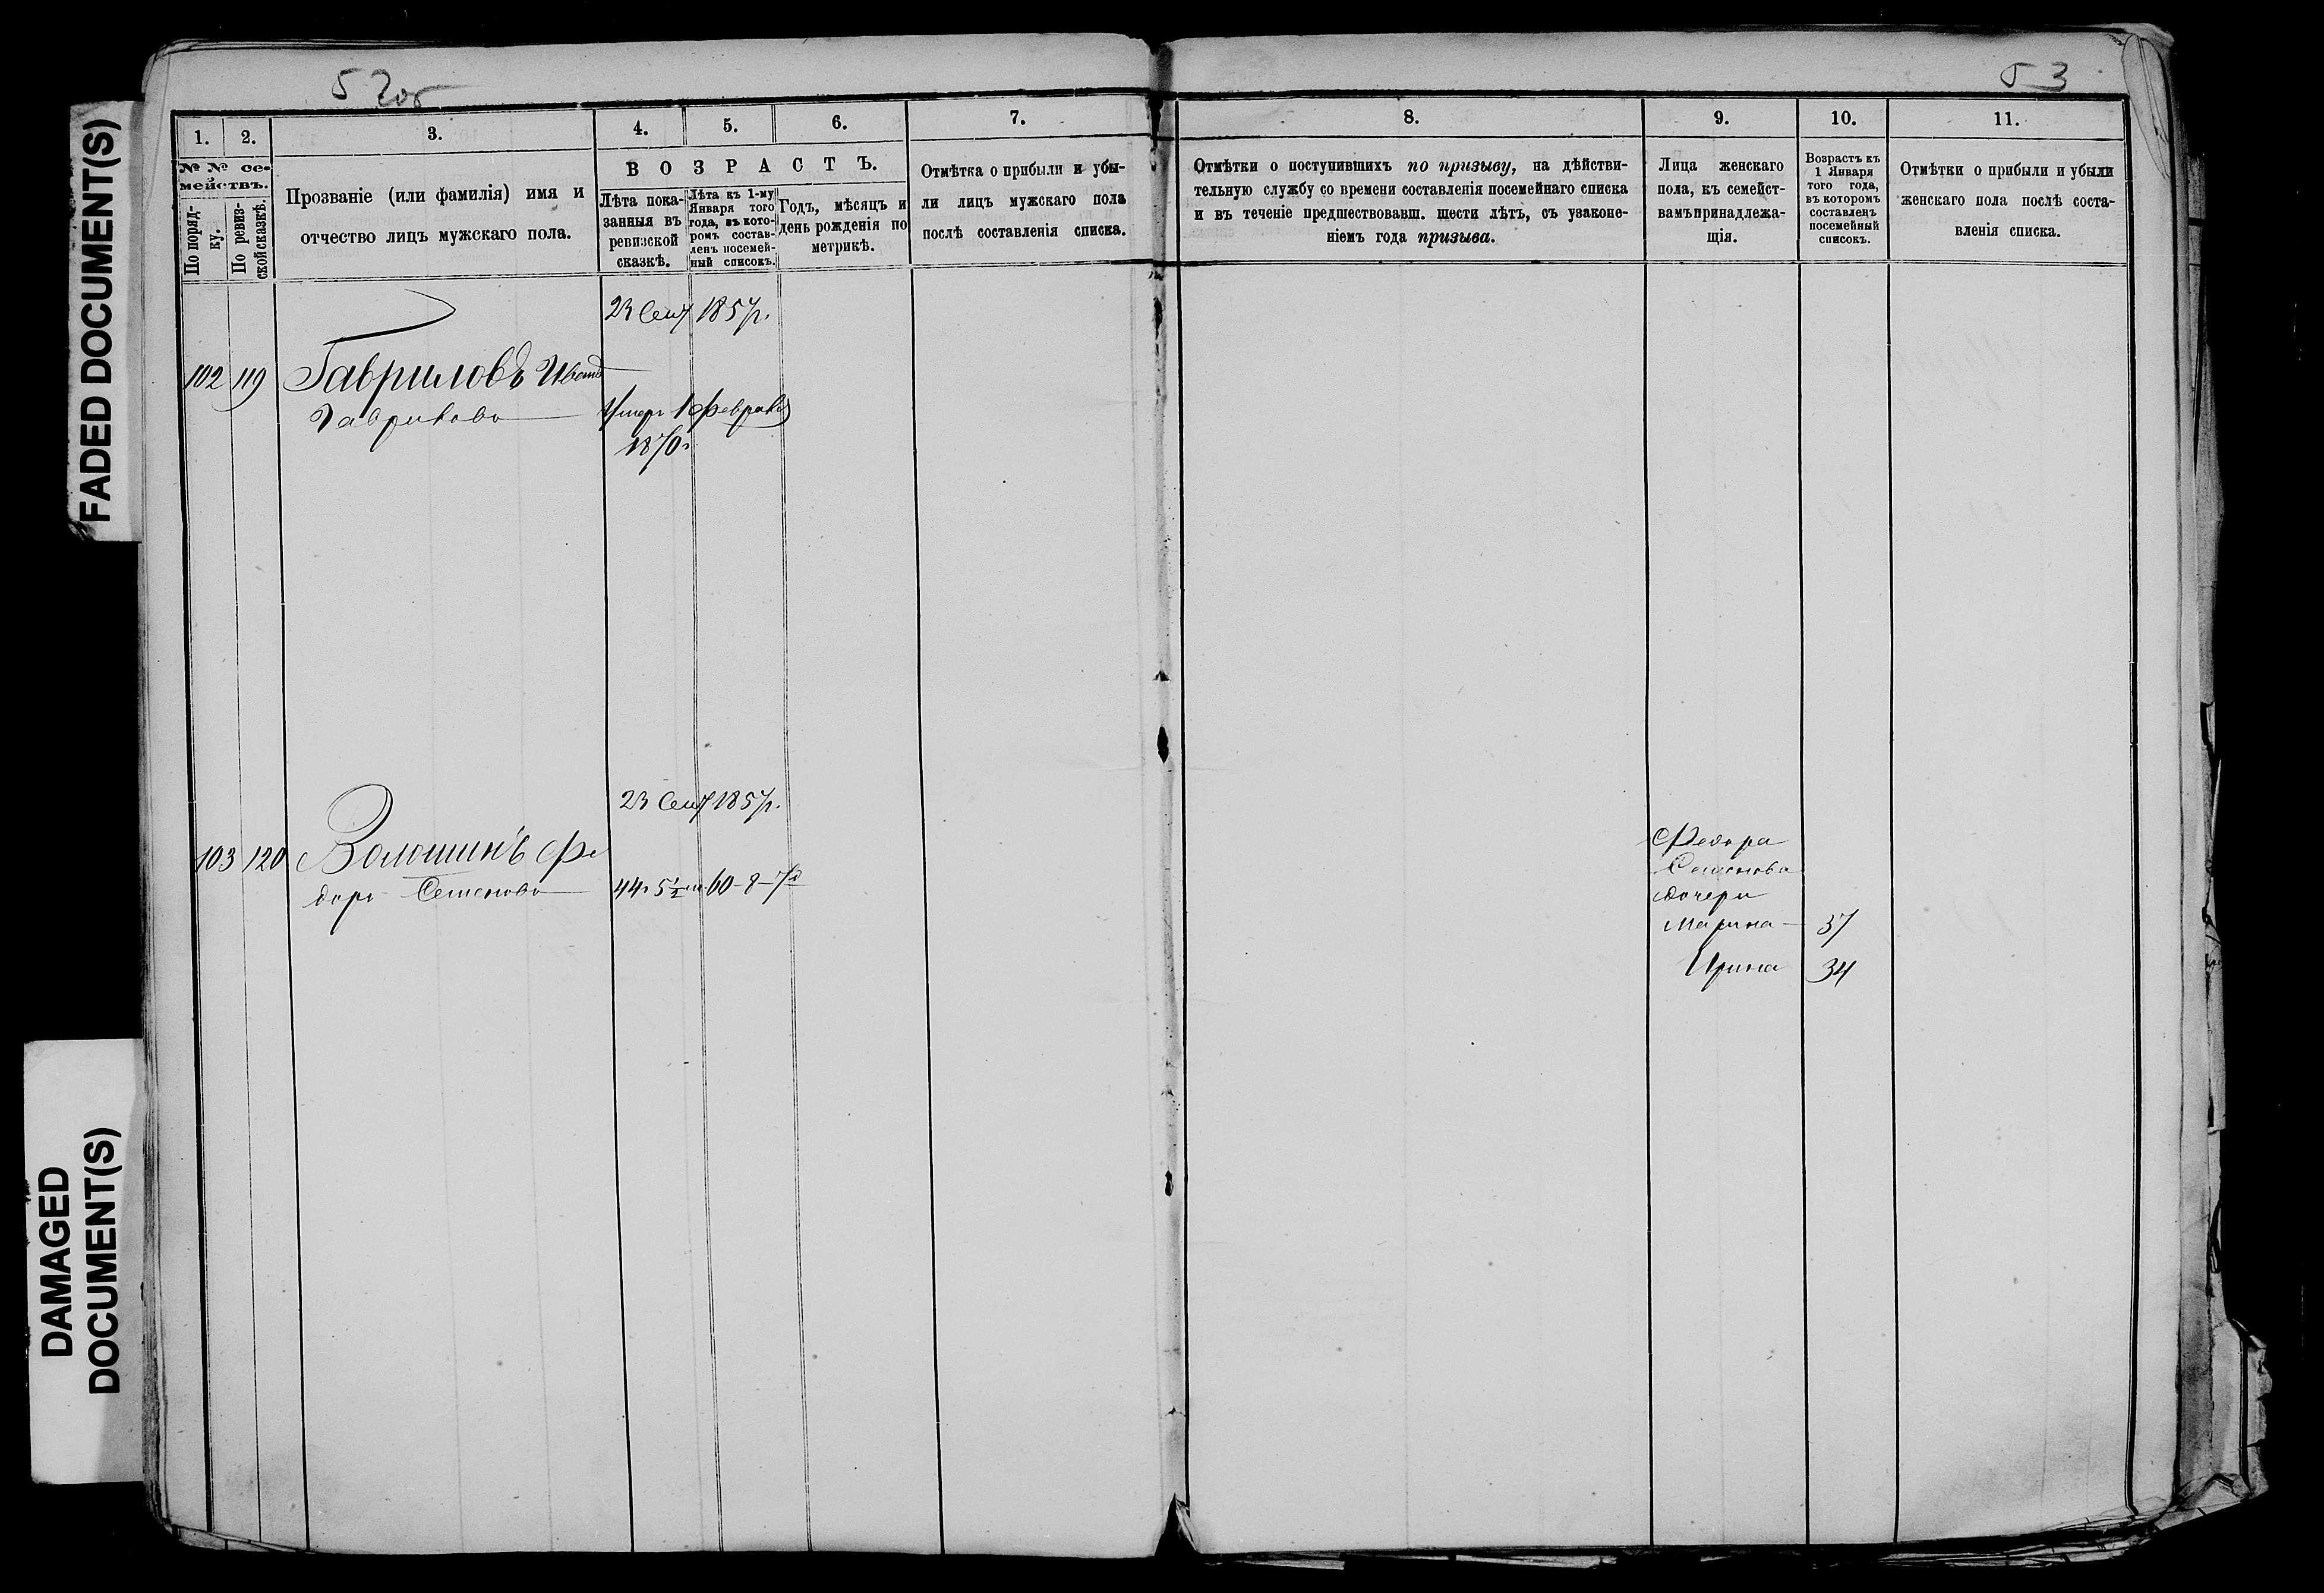 FADED DOCUMENT(S)
DAMAGED
DOCUMENT(S)
52об
53
1.
2.
3.
4.
5.
6.
7.
8.
9.
10.
11.
№ № се-
мействъ.
По поряд-
ку.
По ревиз-
ской сказкѣ.
Прозваніе (или фамилія) имя и
отчество лицъ мужскаго пола.
ВОЗРАСТЪ.
Лѣта пока-
занныя въ
ревизской
сказкѣ.
Лѣта къ 1-му
Января того
года, въ кото-
ромъ состав-
ленъ посемей-
ный списокъ.
Годъ, мѣсяцъ и
день рожденія по
метрикѣ.
Отмѣтка о прибыли и убы-
ли лицъ мужскаго пола
послѣ составленія списка.
Отмѣтки о поступившихъ по призыву, на дѣйстви-
тельную службу со времени составленія посемейнаго списка
и въ теченіе предшествовавш. шести лѣтъ, съ узаконе-
ніемъ года призыва.
Лица женскаго
пола, къ семейст-
вамъ принадлежа-
щія.
Возрастъ къ
1 Января
того года,
въ которомъ
составленъ
посемейный
списокъ.
Отмѣтки о прибыли и убыли
женскаго пола послѣ соста-
вленія списка.
23 Сент 1857г.
102 119 Гавриловъ Иванъ
Гавриловъ
Умеръ 1 февраля
1870г
23 Сент 1857г.
103 120 Волошинъ Фе
доръ Семеновъ 44г 5½м 60-8-7д
Федора
Семенова
дочери
Марина 37
Ирина 34